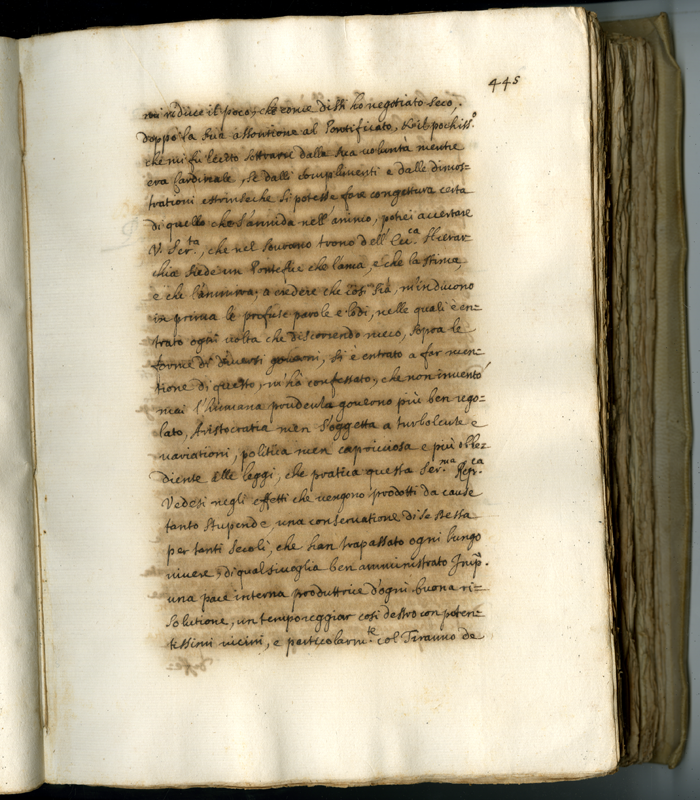 445
mi riduce il poco, che come dissi hò negotiato seco,
doppò la sua assontione al Pontificato, et il pochiss.º
che mi fù lecito sottrarni dalla sua volontà mentre
era Cardinale, se dalli complimenti e dalle dimos-
trationi estrinseche si potesse fare congettura certa
di quello che s'annida nell'animo, potrei accertare
V. Ser.ta, che nel sourano trono dell' Hierar-
chia siede un Pontefice che l'ama, e che la stima,
e che l'ammira; a credere che così sia, m'inducono
in prima le profuse parole e lodi, nelle quali è en-
trato ogni volta che discorrendo meco, sopra le
forme di diuersi gouerni, si è entrato a far men-
tione di questo, m'hà confessato, che non inuentò
mai l'humana prudenza gouerno più ben rego-
lato, Aristocratia men soggetta a turbolenze e
uariationi, politica men capricciosa e più obbe-
diente alle leggi, che pratica questa Ser.ma Rep.ca
Vedesi negli effetti che uengono prodotti da cause
tanto stupende, una conseruatione di se stessa
per tanti secoli, che han trapassato ogni lungo
uiuere, di qualsiuoglia ben amministrato Imp.
una pace interna produttrice d'ogni buona ri-
solutione, un temporeggiar così destro con poten-
tissimi uicini, e particolarm.te col Tiranno de